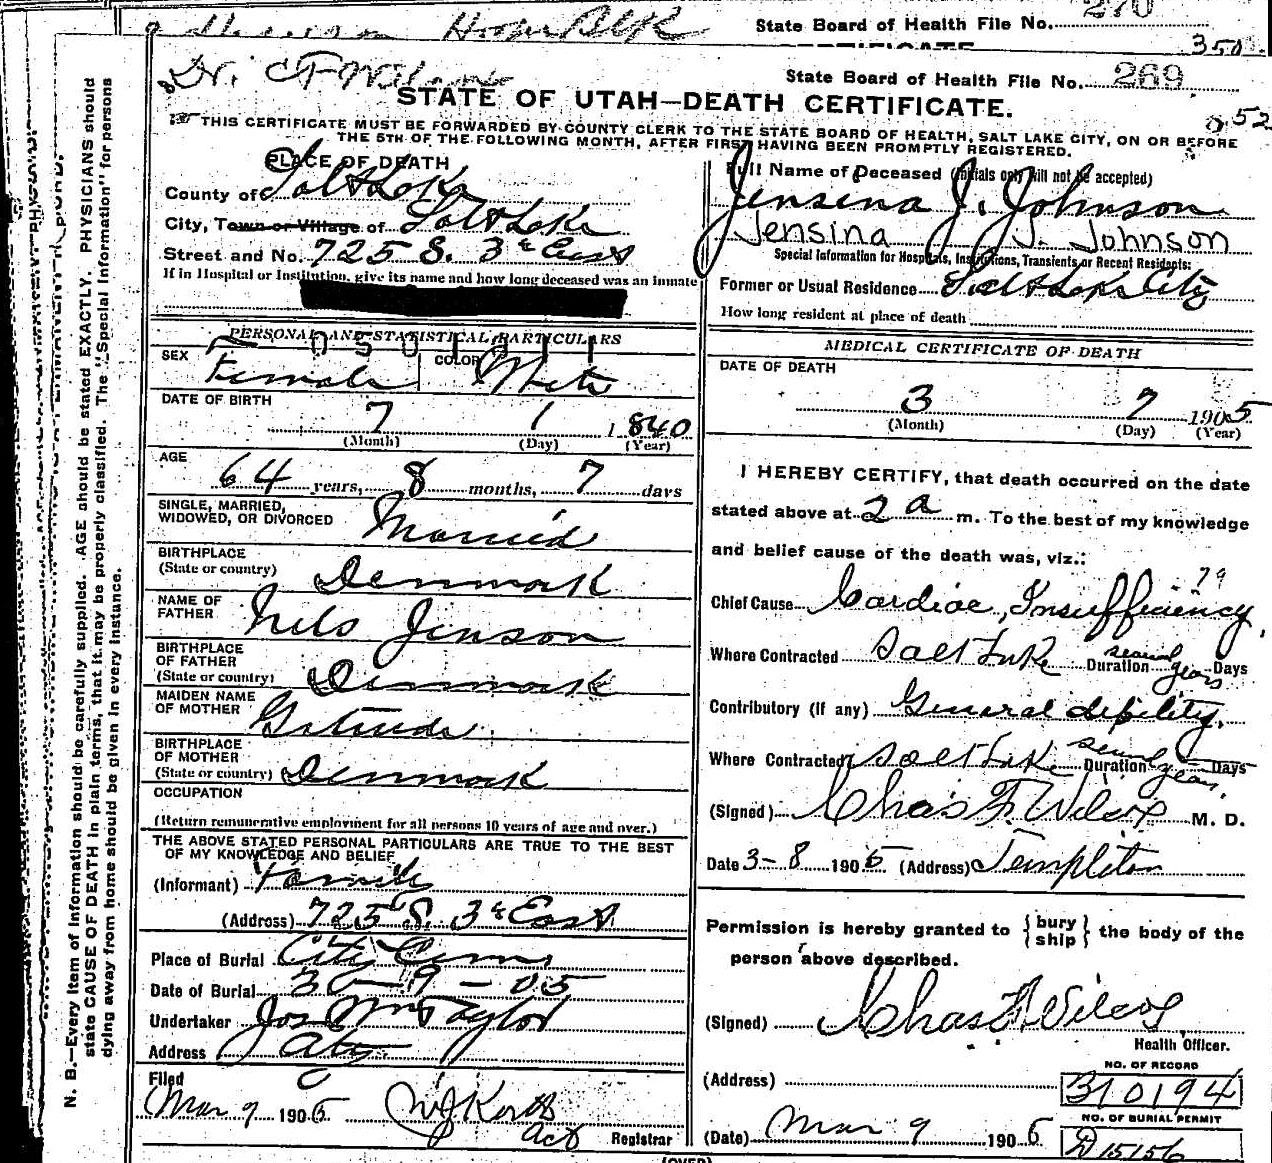 State Board of Health File No. 270
350
Dr. C F Wilcox
State Board of Health File No. 269
STATE OF UTAH—DEATH CERTIFICATE.
52
THIS CERTIFICATE MUST BE FORWARDED BY COUNTY CLERK TO THE STATE BOARD OF HEALTH, SALT LAKE CITY, ON OR BEFORE
THE 5TH OF THE FOLLOWING MONTH, AFTER FIRST HAVING BEEN PROMPTLY REGISTERED.
PLACE OF DEATH
County of Salt Lake
City, Town or Village of Salt Lake
Street and No. 725 S. 3d East
If in Hospital or Institution, give its name and how long deceased was an inmate
PERSONAL AND STATISTICAL PARTICULARS
SEX Female COLOR White
DATE OF BIRTH
7 1 1840
(Month) (Day) (Year)
AGE
64 years, 8 months, 7 days
SINGLE, MARRIED,
WIDOWED, OR DIVORCED Married
BIRTHPLACE
(State or country) Denmark
NAME OF
FATHER Nels Jenson
BIRTHPLACE
OF FATHER
(State or country) Denmark
MAIDEN NAME
OF MOTHER Gertrude
BIRTHPLACE
OF MOTHER
(State or country) Denmark
OCCUPATION
(Return remunerative employment for all persons 10 years of age and over.)
THE ABOVE STATED PERSONAL PARTICULARS ARE TRUE TO THE BEST
OF MY KNOWLEDGE AND BELIEF
(Informant) Family
(Address) 725 S. 3d East
Place of Burial City Cem
Date of Burial 3-9-05
Undertaker Jos Wm Taylor
Address City
Filed
Mar 9 1905
Act Registrar
Full Name of Deceased (Initials only will not be accepted)
Jensena J. Johnson
Jensina J. Johnson
Special Information for Hospitals, Institutions, Transients or Recent Residents:
Former or Usual Residence Salt Lake City
How long resident at place of death
MEDICAL CERTIFICATE OF DEATH
DATE OF DEATH
3 7 1905
(Month) (Day) (Year)
I HEREBY CERTIFY, that death occurred on the date
stated above at 2 a m. To the best of my knowledge
and belief cause of the death was, viz.:
79
Chief Cause Cardiac Insufficiency
Where Contracted Salt Lake Duration several years Days
Contributory (if any) General debility
Where Contracted Salt Lake Duration several years Days
(Signed) Chas F Wilcox M. D.
Date 3-8 1905 (Address) Templeton
Permission is hereby granted to {bury ship} the body of the
person above described.
(Signed) Chas F Wilcox
Health Officer.
(Address)
NO. OF RECORD
310194
NO. OF BURIAL PERMIT
D 15156
(Date) Mar 9 1905
(OVER)
N. B.—Every item of information should be carefully supplied. AGE should be stated EXACTLY. PHYSICIANS should
state CAUSE OF DEATH in plain terms, that it may be properly classified. The "Special Information" for persons
dying away from home should be given in every instance.